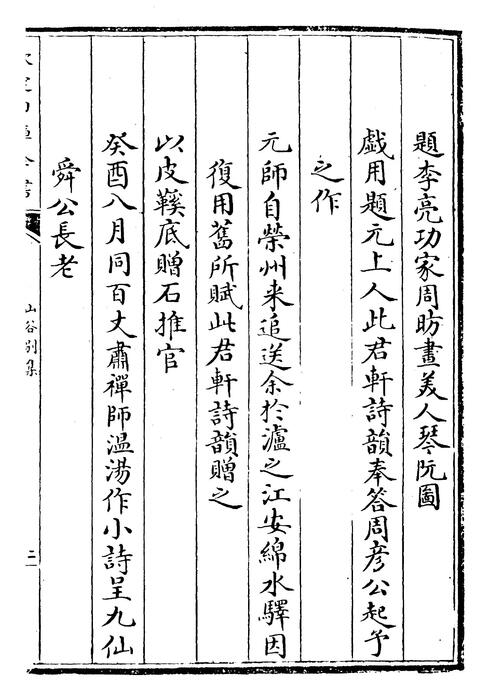 題李亮功家周昉畫美人琴阮圖
戲用題元上人此君軒詩韻奉答周彦公起予
之作
元師自榮州来追送余於瀘之江安綿水驛因
復用舊所賦此君軒詩韻贈之
以皮鞵底贈石推官
癸酉八月同百丈肅禪師温湯作小詩呈九仙
舜公長老
山谷别集
二